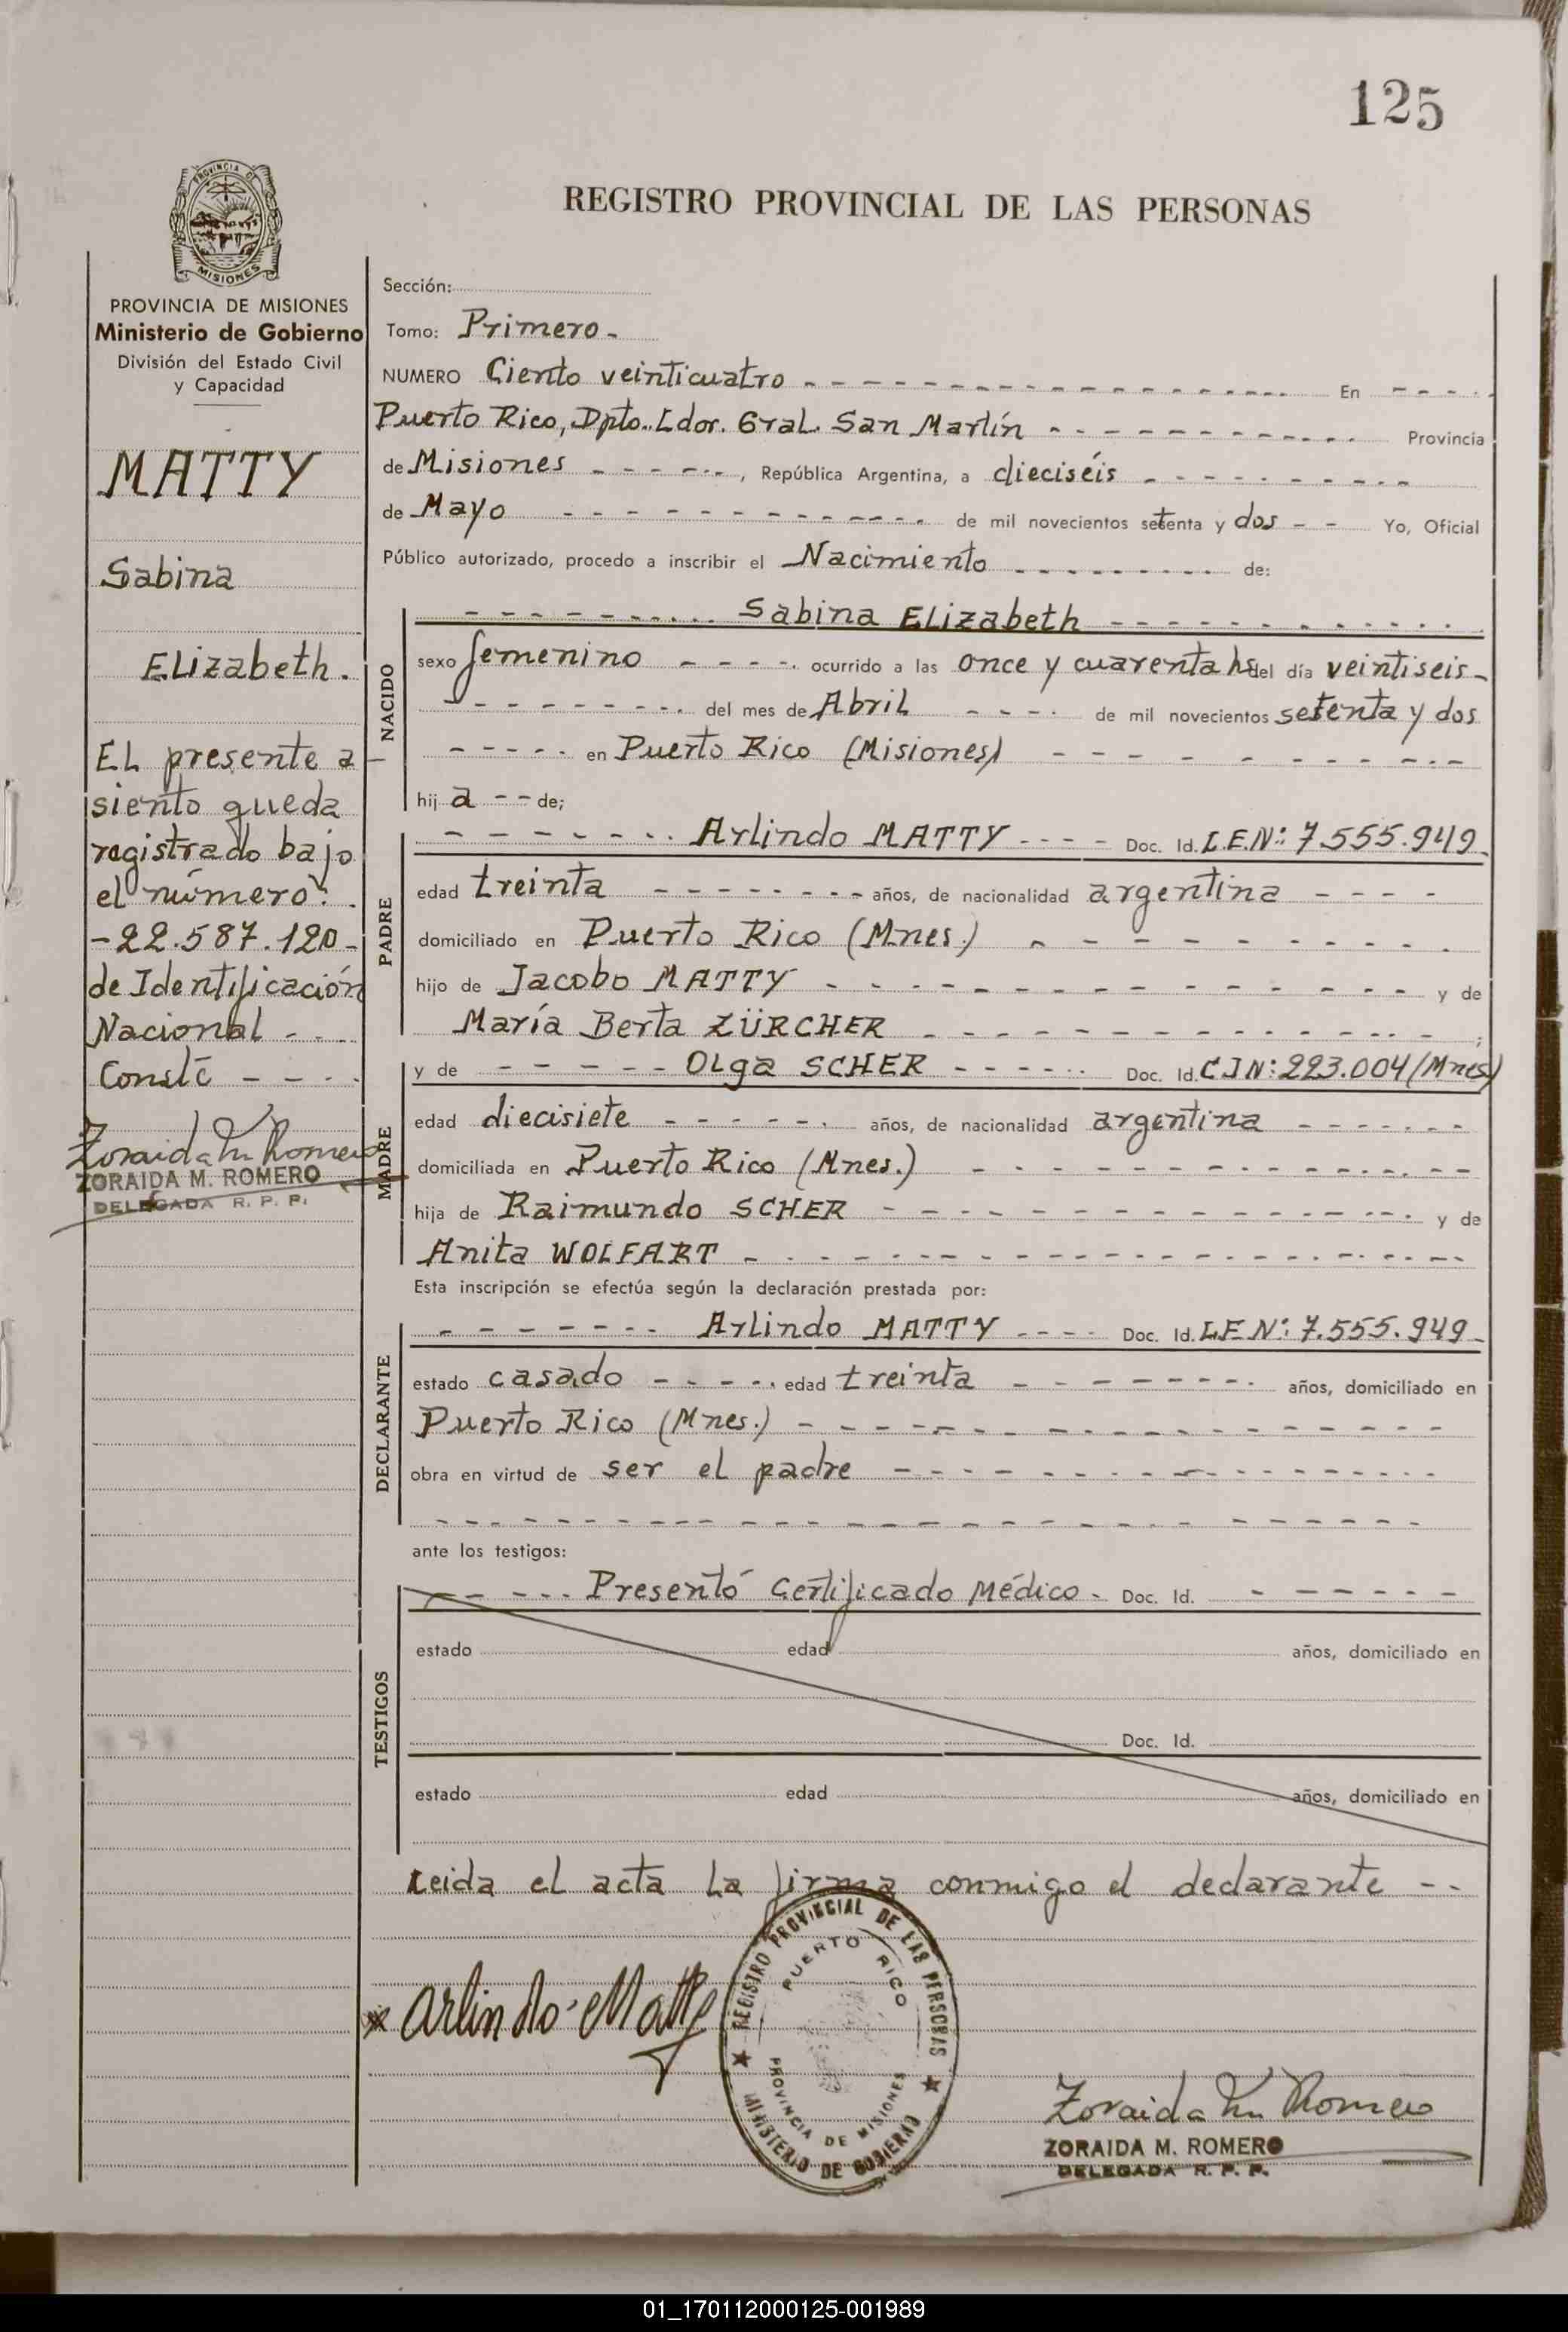 125
REGISTRO PROVINCIAL DE LAS PERSONAS
PROVINCIA DE
MISIONES
PROVINCIA DE MISIONES
Ministerio de Gobierno
División del Estado Civil
y Capacidad
MATTY
Sabina
Elizabeth.
El presente a
siento queda
registrado bajo
el número:
-22.587.120-
de Identificación
Nacional - - -
Conste - - - -
Zoraida M. Romero
ZORAIDA M. ROMERO
DELEGADA R. P. P.
Sección:
Tomo: Primero-
NUMERO Ciento veinticuatro - - - - En - - - -
Puerto Rico, Dpto. Ldor. Gral. San Martín - - - - Provincia
de Misiones - - - -, República Argentina, a dieciséis - - - -
de Mayo - - - - de mil novecientos setenta y dos - - Yo, Oficial
Público autorizado, procedo a inscribir el Nacimiento - - - - de:
NACIDO
- - - - Sabina Elizabeth - - - -
sexo femenino - - - - ocurrido a las once y cuarenta hs del día veintiseis-
- - - - del mes de Abril - - - - de mil novecientos setenta y dos
- - - - en Puerto Rico (Misiones) - - - -
hij a - - de;
PADRE
- - - - Arlindo MATTY - - - - Doc. Id. L.E.Nº: 7.555.949-
edad treinta - - - - años, de nacionalidad argentina - - - -
domiciliado en Puerto Rico (Mnes.) - - - -
hijo de Jacobo MATTY - - - - y de
María Berta ZÜRCHER - - - - ;
MADRE
y de - - - - Olga SCHER - - - - Doc. Id. C.I.N: 223.004/(Mnes)
edad diecisiete - - - - años, de nacionalidad argentina - - - -
domiciliada en Puerto Rico (Mnes.) - - - -
hija de Raimundo SCHER - - - - y de
Anita WOLFART - - - -
Esta inscripción se efectúa según la declaración prestada por:
DECLARANTE
- - - - Arlindo MATTY - - - - Doc. Id. L.E.Nº: 7.555.949-
estado casado - - - - edad treinta - - - - años, domiciliado en
Puerto Rico (Mnes.) - - - -
obra en virtud de ser el padre - - - -
- - - -
ante los testigos:
TESTIGOS
- - - - Presentó Certificado Médico - Doc. Id. - - - -
estado edad años, domiciliado en
Doc. Id.
estado edad años, domiciliado en
Leida el acta la firma conmigo el declarante - -
Arlindo Matty
REGISTRO PROVINCIAL DE LAS PERSONAS
PUERTO RICO
PROVINCIA DE MISIONES
MINISTERIO DE GOBIERNO
Zoraida M. Romero
ZORAIDA M. ROMERO
DELEGADA R. P. P.
01_170112000125-001989